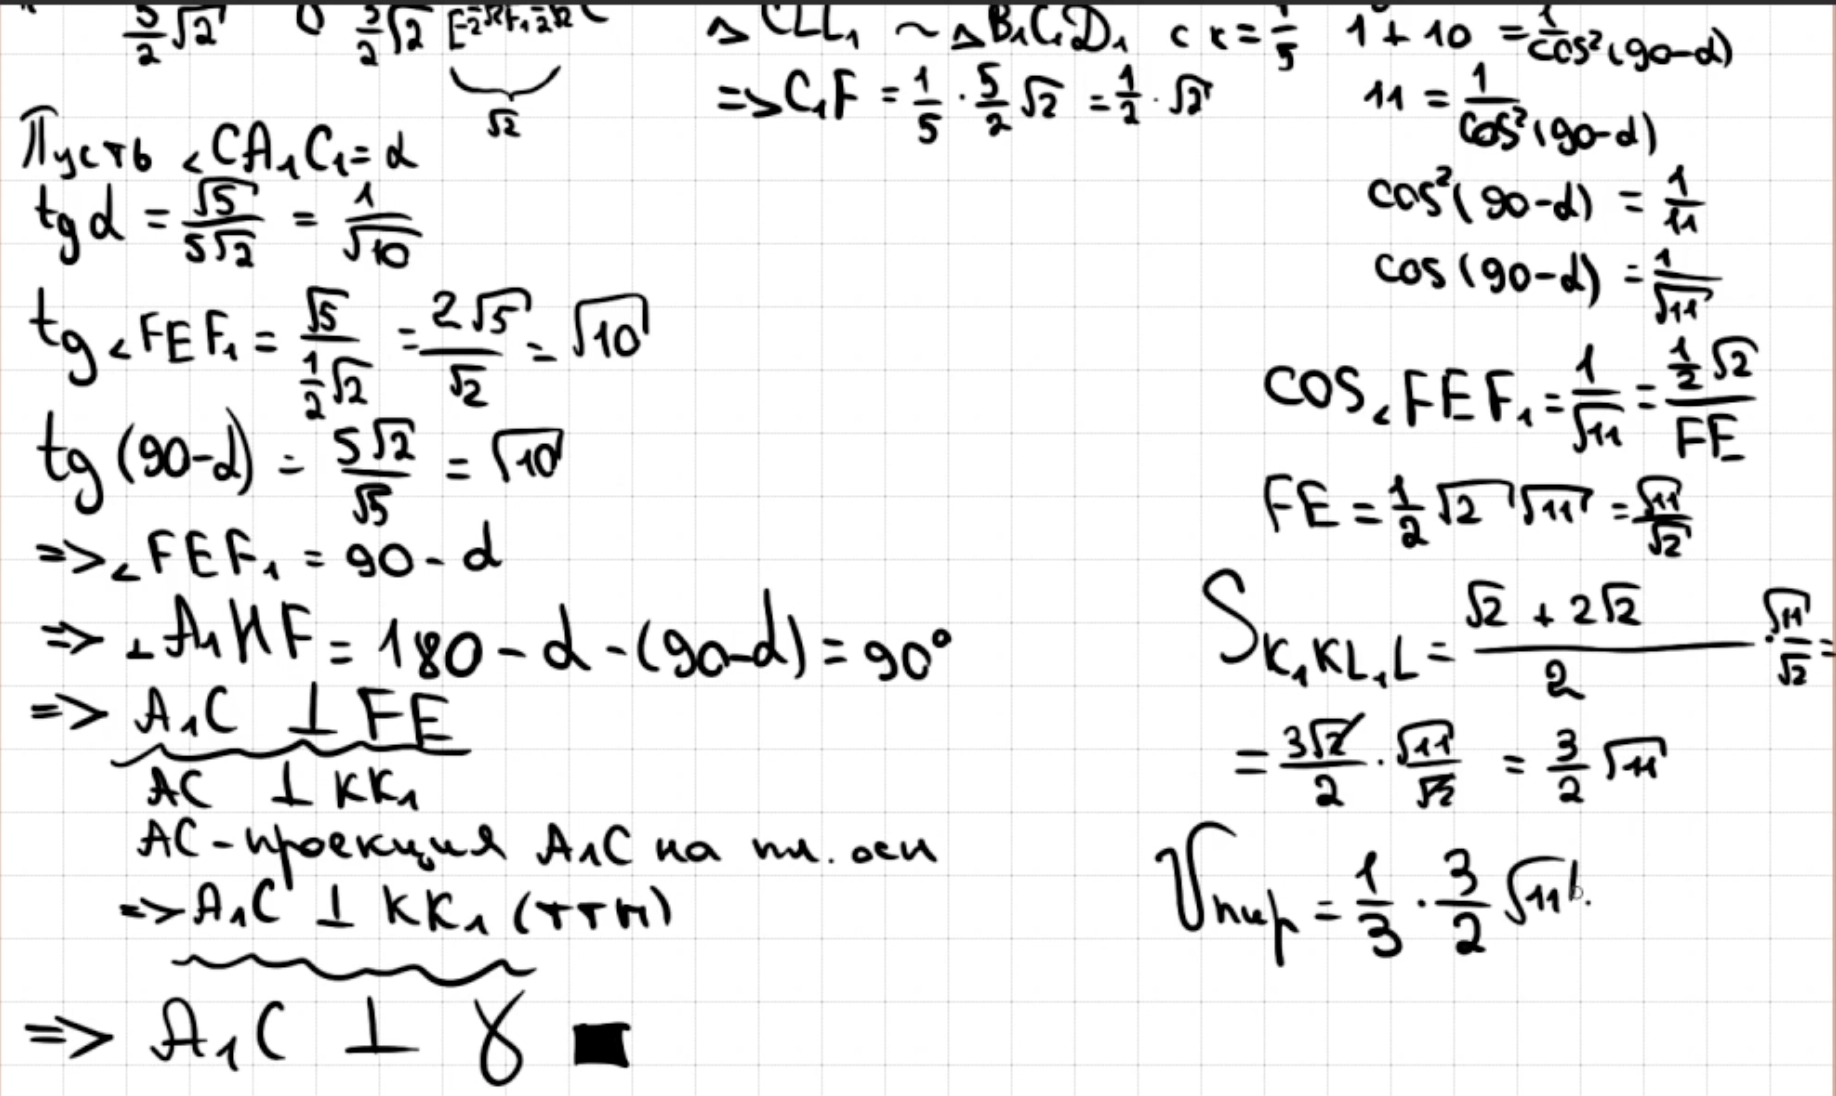 5/2 √2 0 5/2 √2
√2
Пусть ∠CA₁C₁ = α
tg α = √5/(5√2) = 1/√10
tg ∠FEF₁ = √5/(1/2 √2) = 2√5/√2 = √10
tg (90-α) = 5√2/√5 = √10
=> ∠FEF₁ = 90 - α
=> ∠A₁HF = 180 - α - (90-α) = 90°
=> A₁C ⊥ FE
AC ⊥ KK₁
AC - проекция A₁C на пл. осн
=> A₁C ⊥ KK₁ (ТТП)
=> A₁C ⊥ γ ■
△CLL₁ ~ △B₁C₁D₁ с к = 1/5
=> C₁F = 1/5 · 5/2 √2 = 1/2 · √2
1 + 10 = 1/cos²(90-α)
11 = 1/cos²(90-α)
cos²(90-α) = 1/11
cos (90-α) = 1/√11
cos ∠FEF₁ = 1/√11 = (1/2 √2)/FE
FE = 1/2 √2 √11 = √11/√2
S K₁KL₁L = (√2 + 2√2)/2 · √11/√2 =
= 3√2/2 · √11/√2 = 3/2 √11
Vпир = 1/3 · 3/2 √11 ·